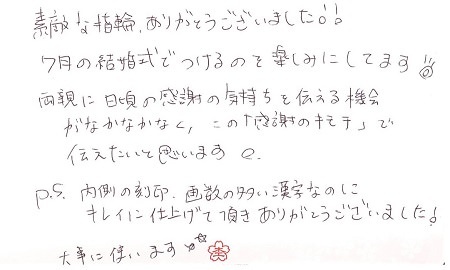 素敵な指輪、ありがとうございました!!
7月の結婚式でつけるのを楽しみにしてます!!
両親に日頃の感謝の気持ちを伝える機会
がなかなかなく、この「感謝のキモチ」で
伝えたいと思います。
P.S. 内側の刻印、画数の多い漢字なのに
キレイに仕上げて頂きありがとうございました!
大事に使います